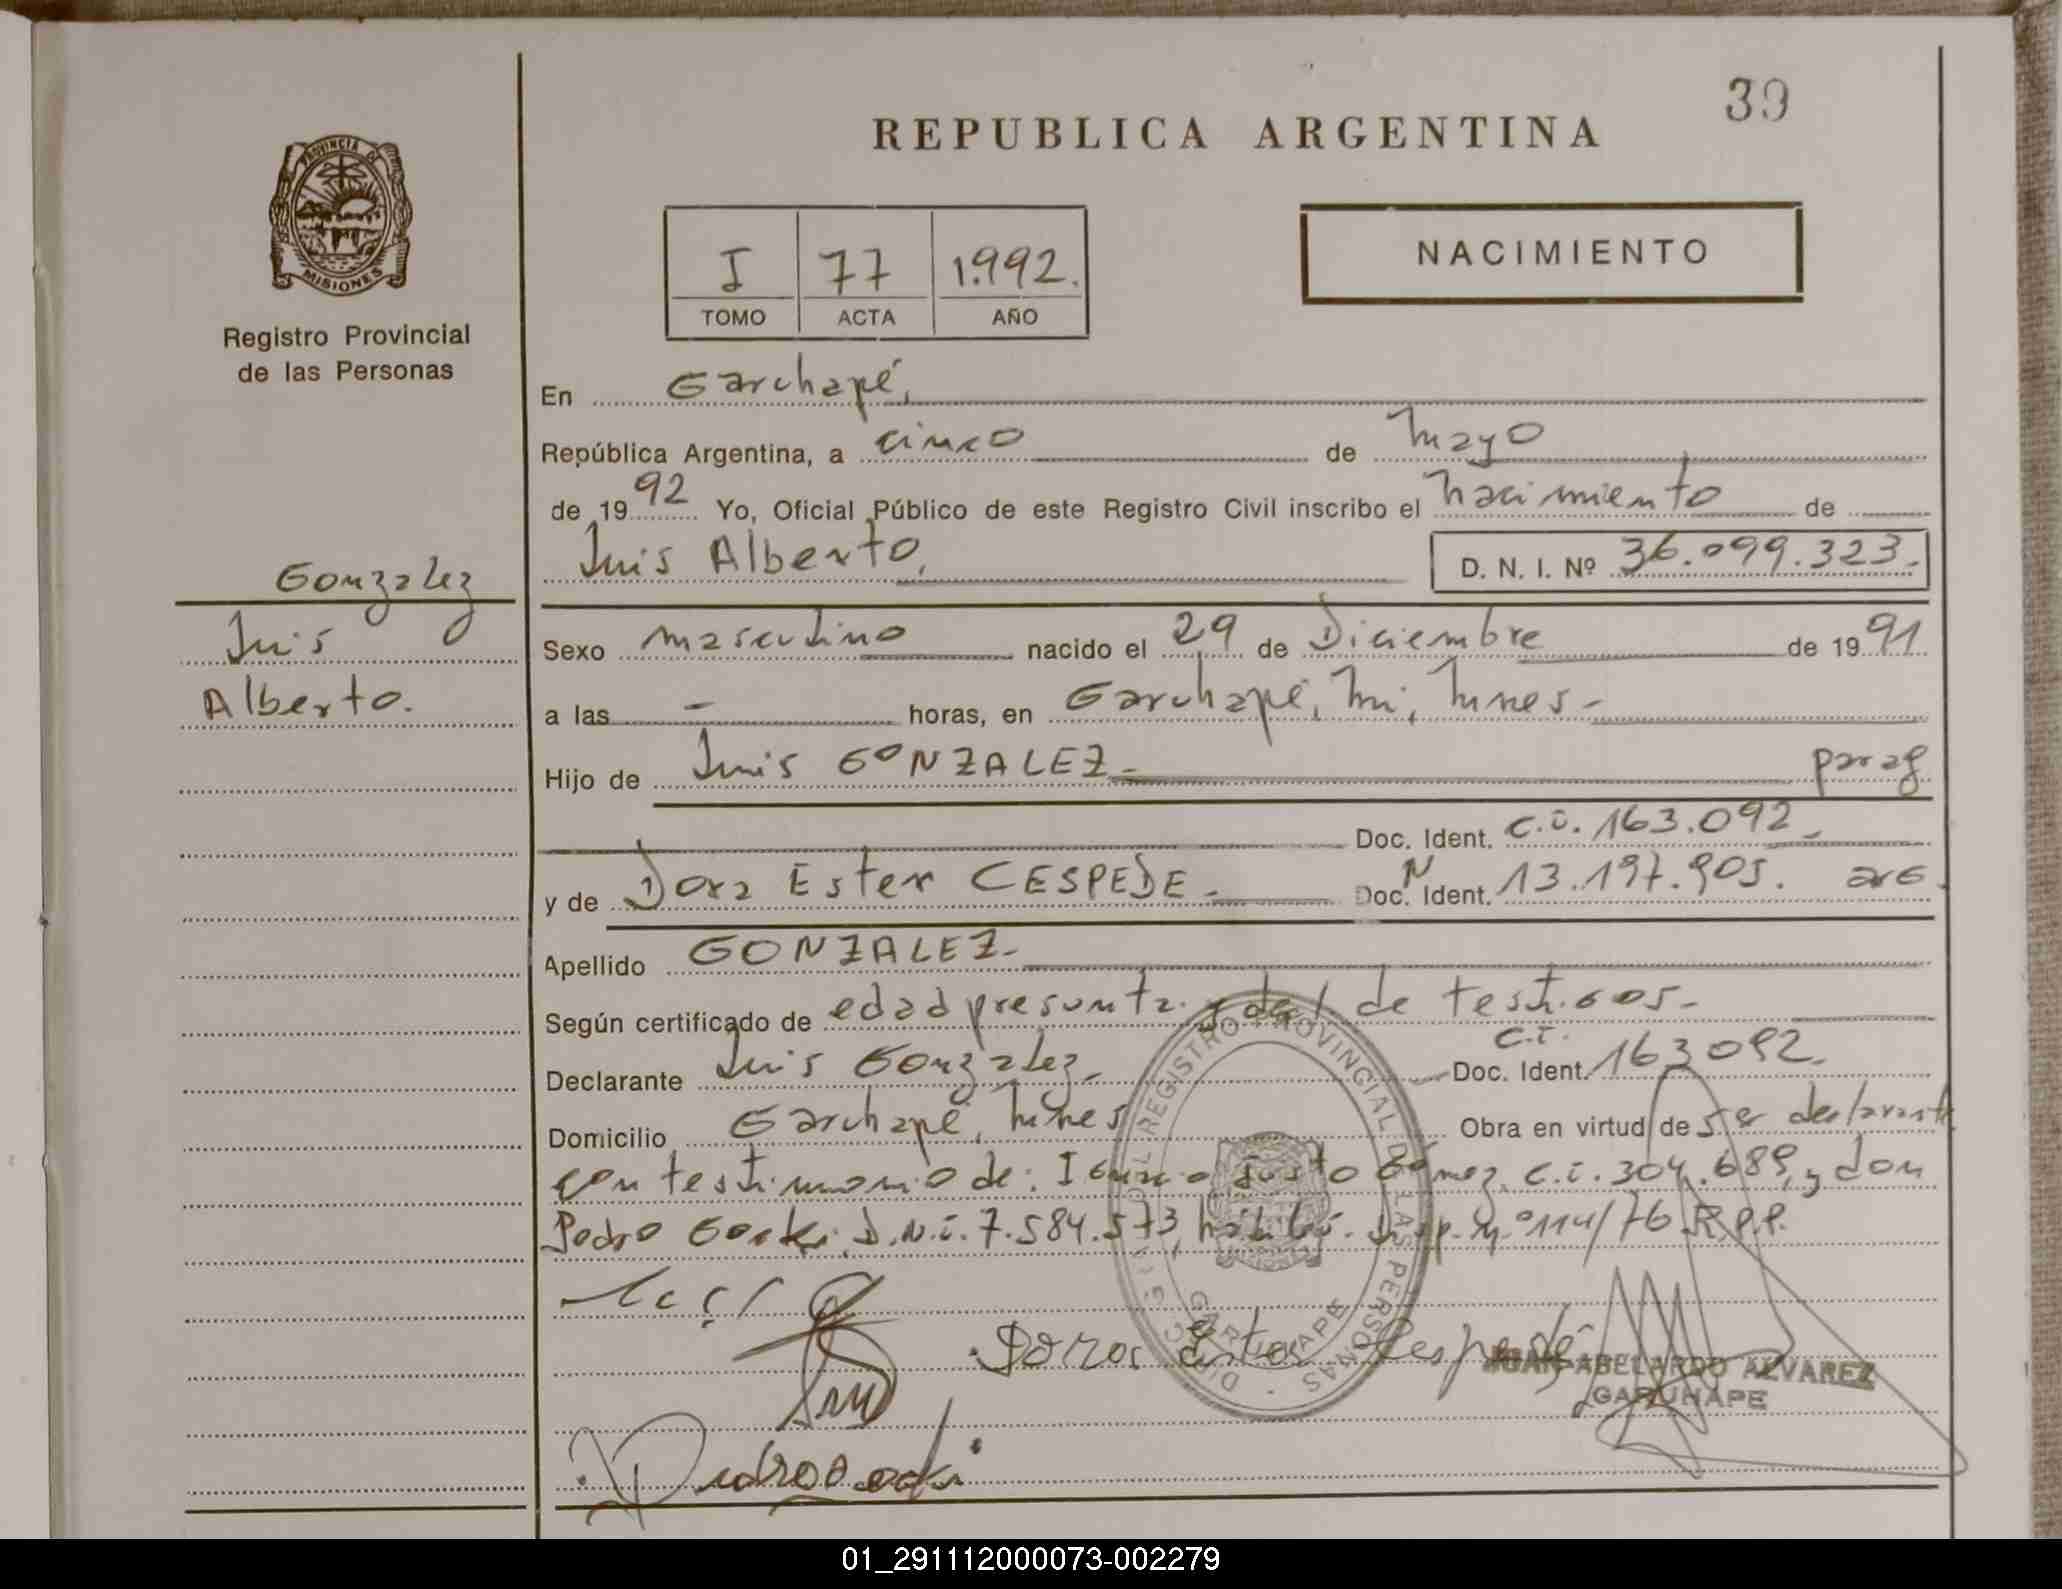 39
REPUBLICA ARGENTINA
PROVINCIA DE
MISIONES
Registro Provincial
de las Personas
NACIMIENTO
I 77 1.992.
TOMO ACTA AÑO
En Garuhapé,
República Argentina, a cinco de Mayo
de 1992 Yo, Oficial Público de este Registro Civil inscribo el nacimiento de
Luis Alberto, D. N. I. Nº 36.099.323.-
Gonzalez
Luis
Alberto.
Sexo masculino nacido el 29 de Diciembre de 1991
a las - horas, en Garuhapé,
Hijo de Luis GONZALEZ- parag
Doc. Ident. C.I. 163.092.-
y de Dora Ester CESPEDE.- Doc. Ident. N 13.197.905. arg.
Apellido GONZALEZ.-
Según certificado de edad presunta y de testigos.-
Declarante Luis Gonzalez.- Doc. Ident. C.I. 163092.-
Domicilio Garuhapé, Obra en virtud de ser declarante
con testimonio de: Ignacio Justo Gómez, C.I. 304.689, y don
Pedro D.N.I. 7.584.573, Disp. Nº 114/76 R.P.P.
REGISTRO PROVINCIAL DE LAS PERSONAS
GARUHAPE
Dora Ester Cespede
JUAN ABELARDO ALVAREZ
GARUHAPE
Pedro
01_291112000073-002279